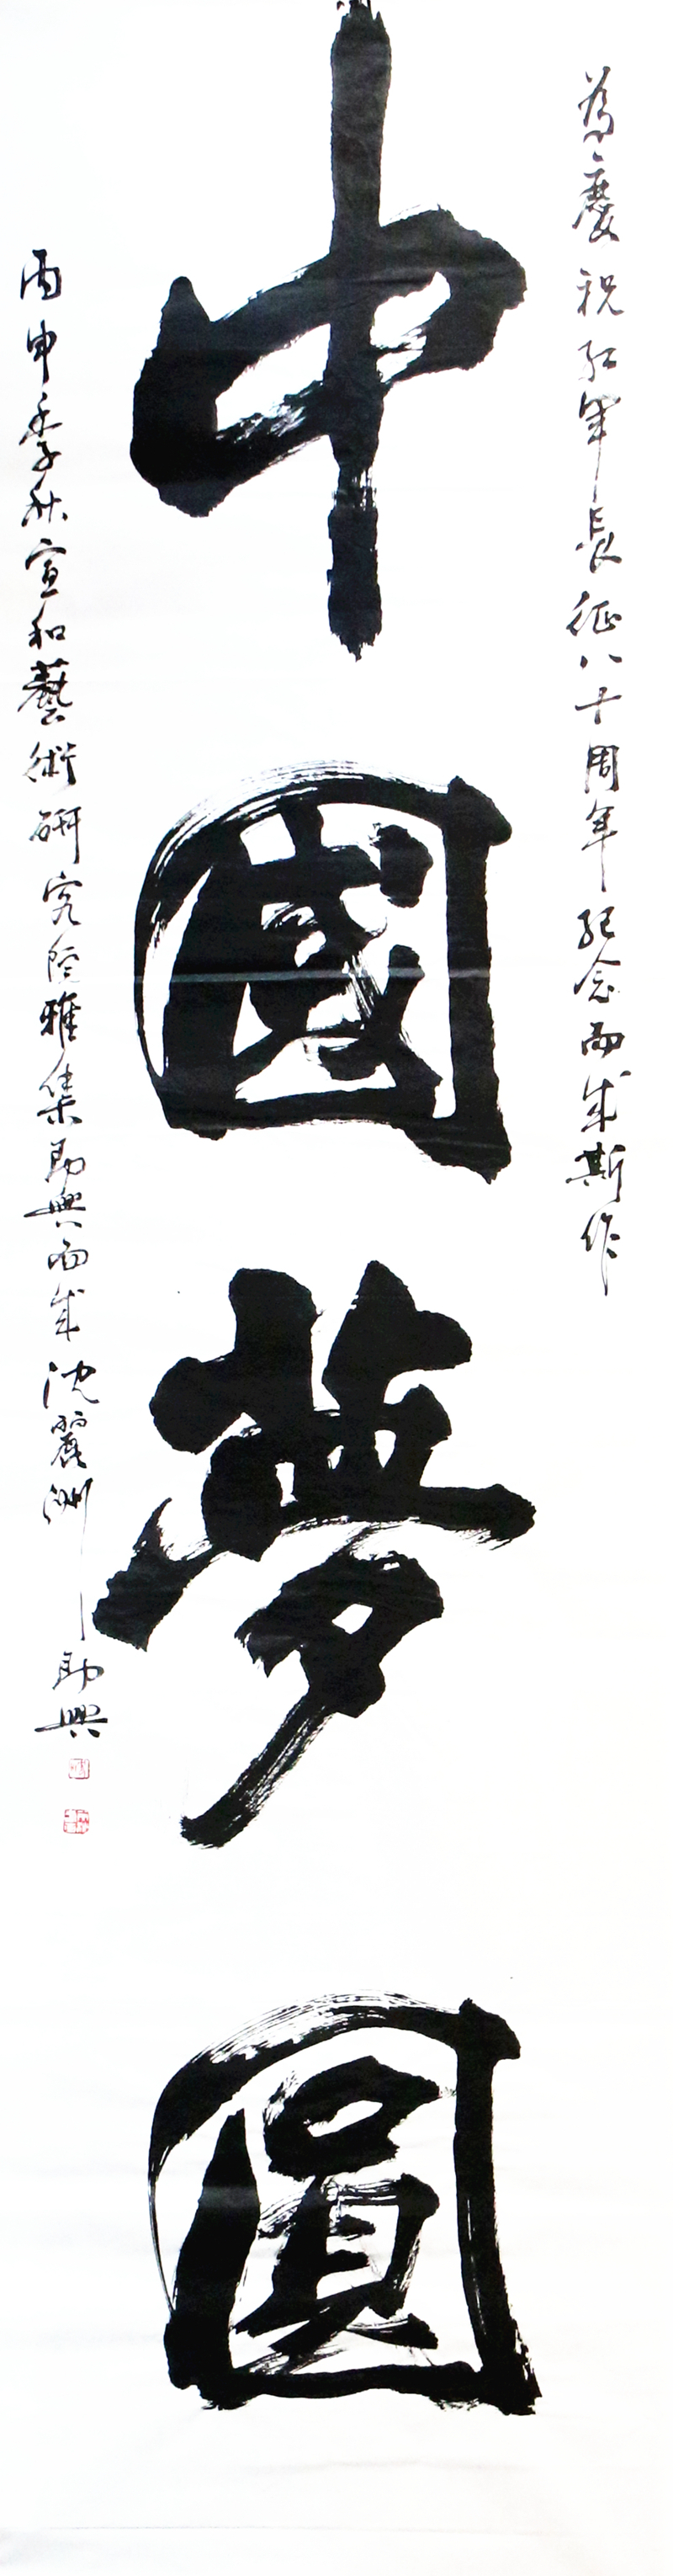 為慶祝紅軍長征八十周年紀念而成斯作
中國夢圓
丙申季秋宣和藝術研究院雅集即興而成沈麗洲即興